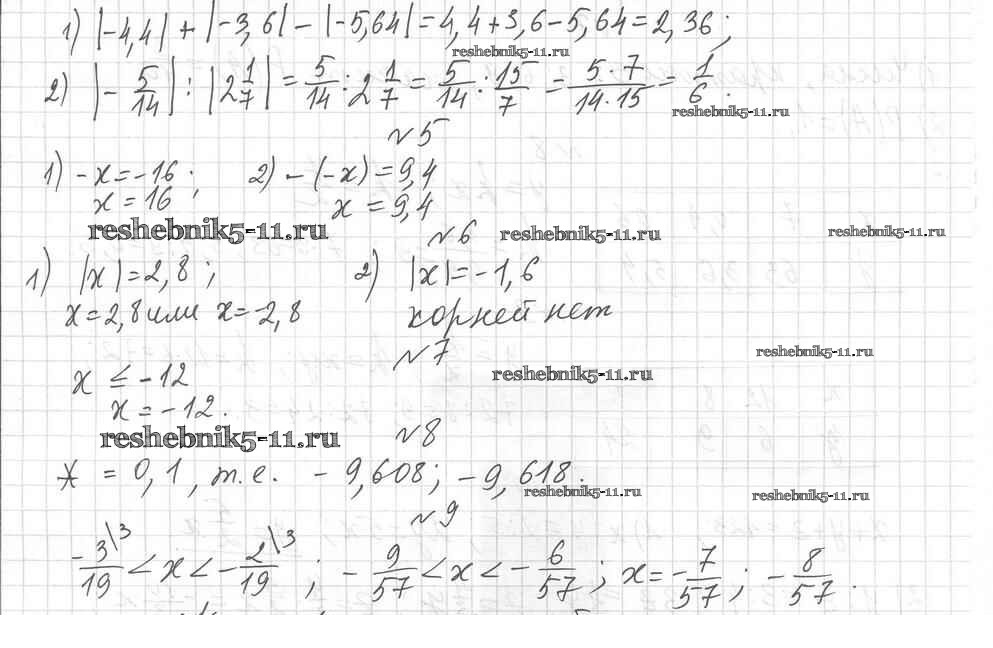 1) |-4,4| + |-3,6| - |-5,64| = 4,4 + 3,6 - 5,64 = 2,36 ;
reshebnik5-11.ru
2) |-5/14| : |2 1/7| = 5/14 : 2 1/7 = 5/14 : 15/7 = 5·7/14·15 = 1/6 .
reshebnik5-11.ru
№5
1) -x = -16 ; 2) -(-x) = 9,4
x = 16 x = 9,4
reshebnik5-11.ru №6 reshebnik5-11.ru reshebnik5-11.ru
1) |x| = 2,8 ; 2) |x| = -1,6
x = 2,8 или x = -2,8 корней нет
№7 reshebnik5-11.ru
x ≤ -12 reshebnik5-11.ru
x = -12.
reshebnik5-11.ru №8
* = 0,1, т.е. -9,608; -9,618.
reshebnik5-11.ru reshebnik5-11.ru
№9
-3\3/19 < x < -2\3/19 ; -9/57 < x < -6/57 ; x = -7/57 ; -8/57 .